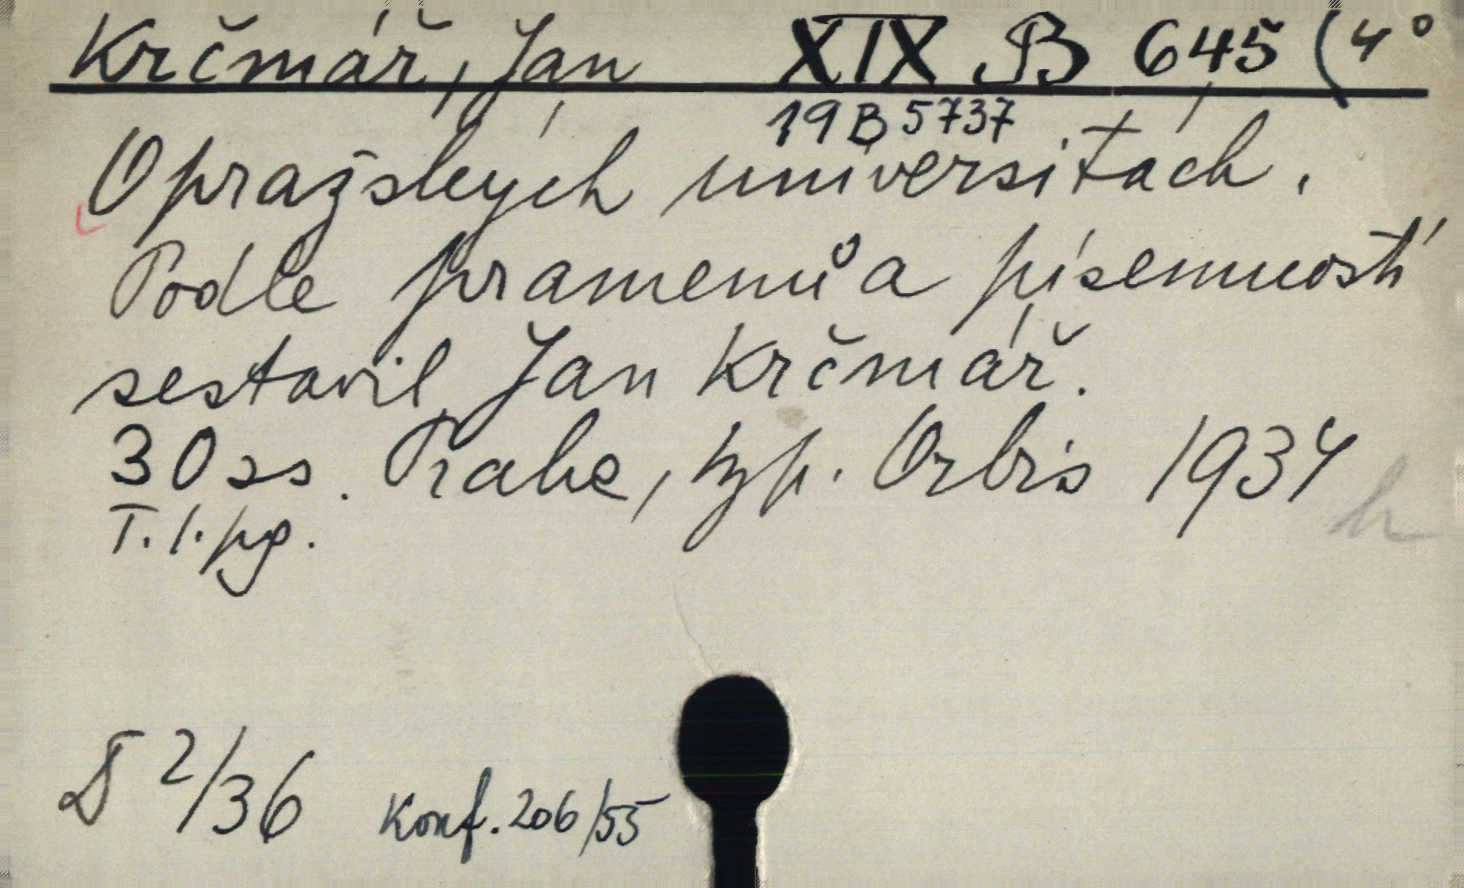 Krčmář, Jan XIX B 645 (4°
19 B 5737
O pražských universitách.
Podle pramenů a písemností
sestavil Jan Krčmář.
30 ss. Praha, typ. Orbis 1934
T. 1. pg.
h
D 2/36 Konf. 206/55